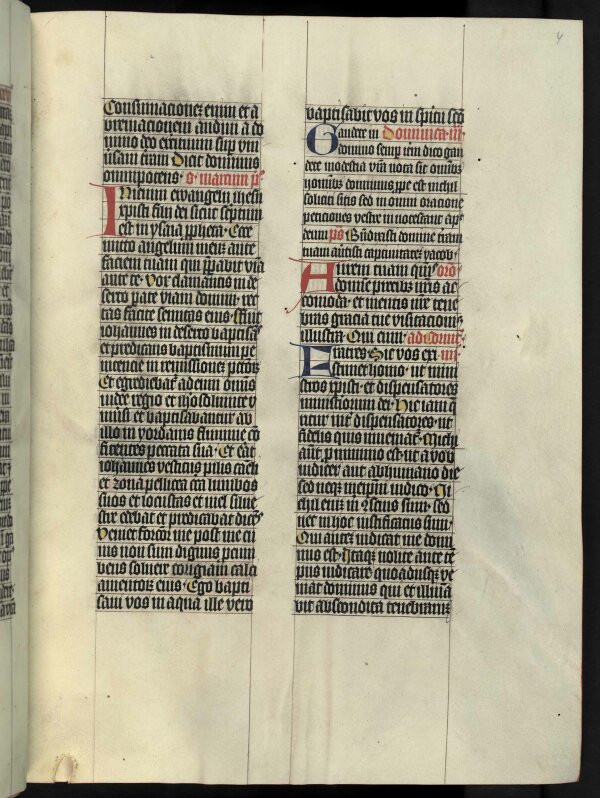 4
Consumacione[m] enim et a
breviacionem audivi a do
mino deo exercituum sup uni
versam t[er]ram Dicit dominus
omnipotens · S marcum
Inicium ewangelii ihesu
xpisti filii dei sicut scriptum
est in ysaia ppheta · Ecce
mitto angelum meu[m] ante
faciem tuam qui p[re]pabit via[m]
ante te · Vox clamantis in de
serto pate viam domini rec
tas facite semitas eius · ffuit
iohannes in deserto baptisa[n]s
et predicans baptismum pe
nitencie in remissione[m] pecc[at]o[rum]
Et egrediebat[ur] ad eum omnis
iudee regio et iherosolimite v
niversi et baptisabantur ab
illo in yordanis flumine co[n]
fitentes peccata sua · Et erat
iohannes vestitus pilis cameli
et zona pellicea circa lumbos
suos et locustas et mel silve
stre edebat et predicabat dice[n]s
Veniet forcior me post me cu
ius non sum dignus procum
bens solvere corrigiam calci
amentor[um] eius · Ego bapti
savi vos in aqua ille vero
baptisabit vos in spiritu s[an]c[t]o
Gaudete in Dominica iii
domino semp iterum dico gau
dete modestia v[est]ra nota sit omnib[us]
hominib[us] dominus prope est nichil
soliciti sitis sed in omni oracione
peticiones vestre innotescant ap[ud]
deum p[salmu]s Benedixisti domine terram
tuam avertisti captivitatem yacob ·
Aurem tuam q[uesumu]s oro
domine precib[us] n[ost]ris ac
comoda · et mentis n[ost]re tene
bras gracia tue visitacionis
illustra · Qui cum · ad Corint
Fratres · Sic vos exi iiii
stimet homo · ut mini
stros xpisti · et dispensatores
ministeriorum dei · Hic iam q[ue]
ritur int[er] dispensatores · ut
fidelis quis inveniat[ur] · Michi
aut[em] p[ro] minimo est · ut a vob[is]
iudicer aut ab humano die
sed neq[ue] meipsum iudico · Ni
chil eni[m] m[ich]i conscius sum · sed
no[n] in hoc iustificatus sum ·
Qui aute[m] iudicat me domi
nus est · Itaq[ue] nolite ante te[m]
pus iudicare quoadusq[ue] ve
niat dominus qui et illu[m]i[n]a
bit abscondita tenebrarum